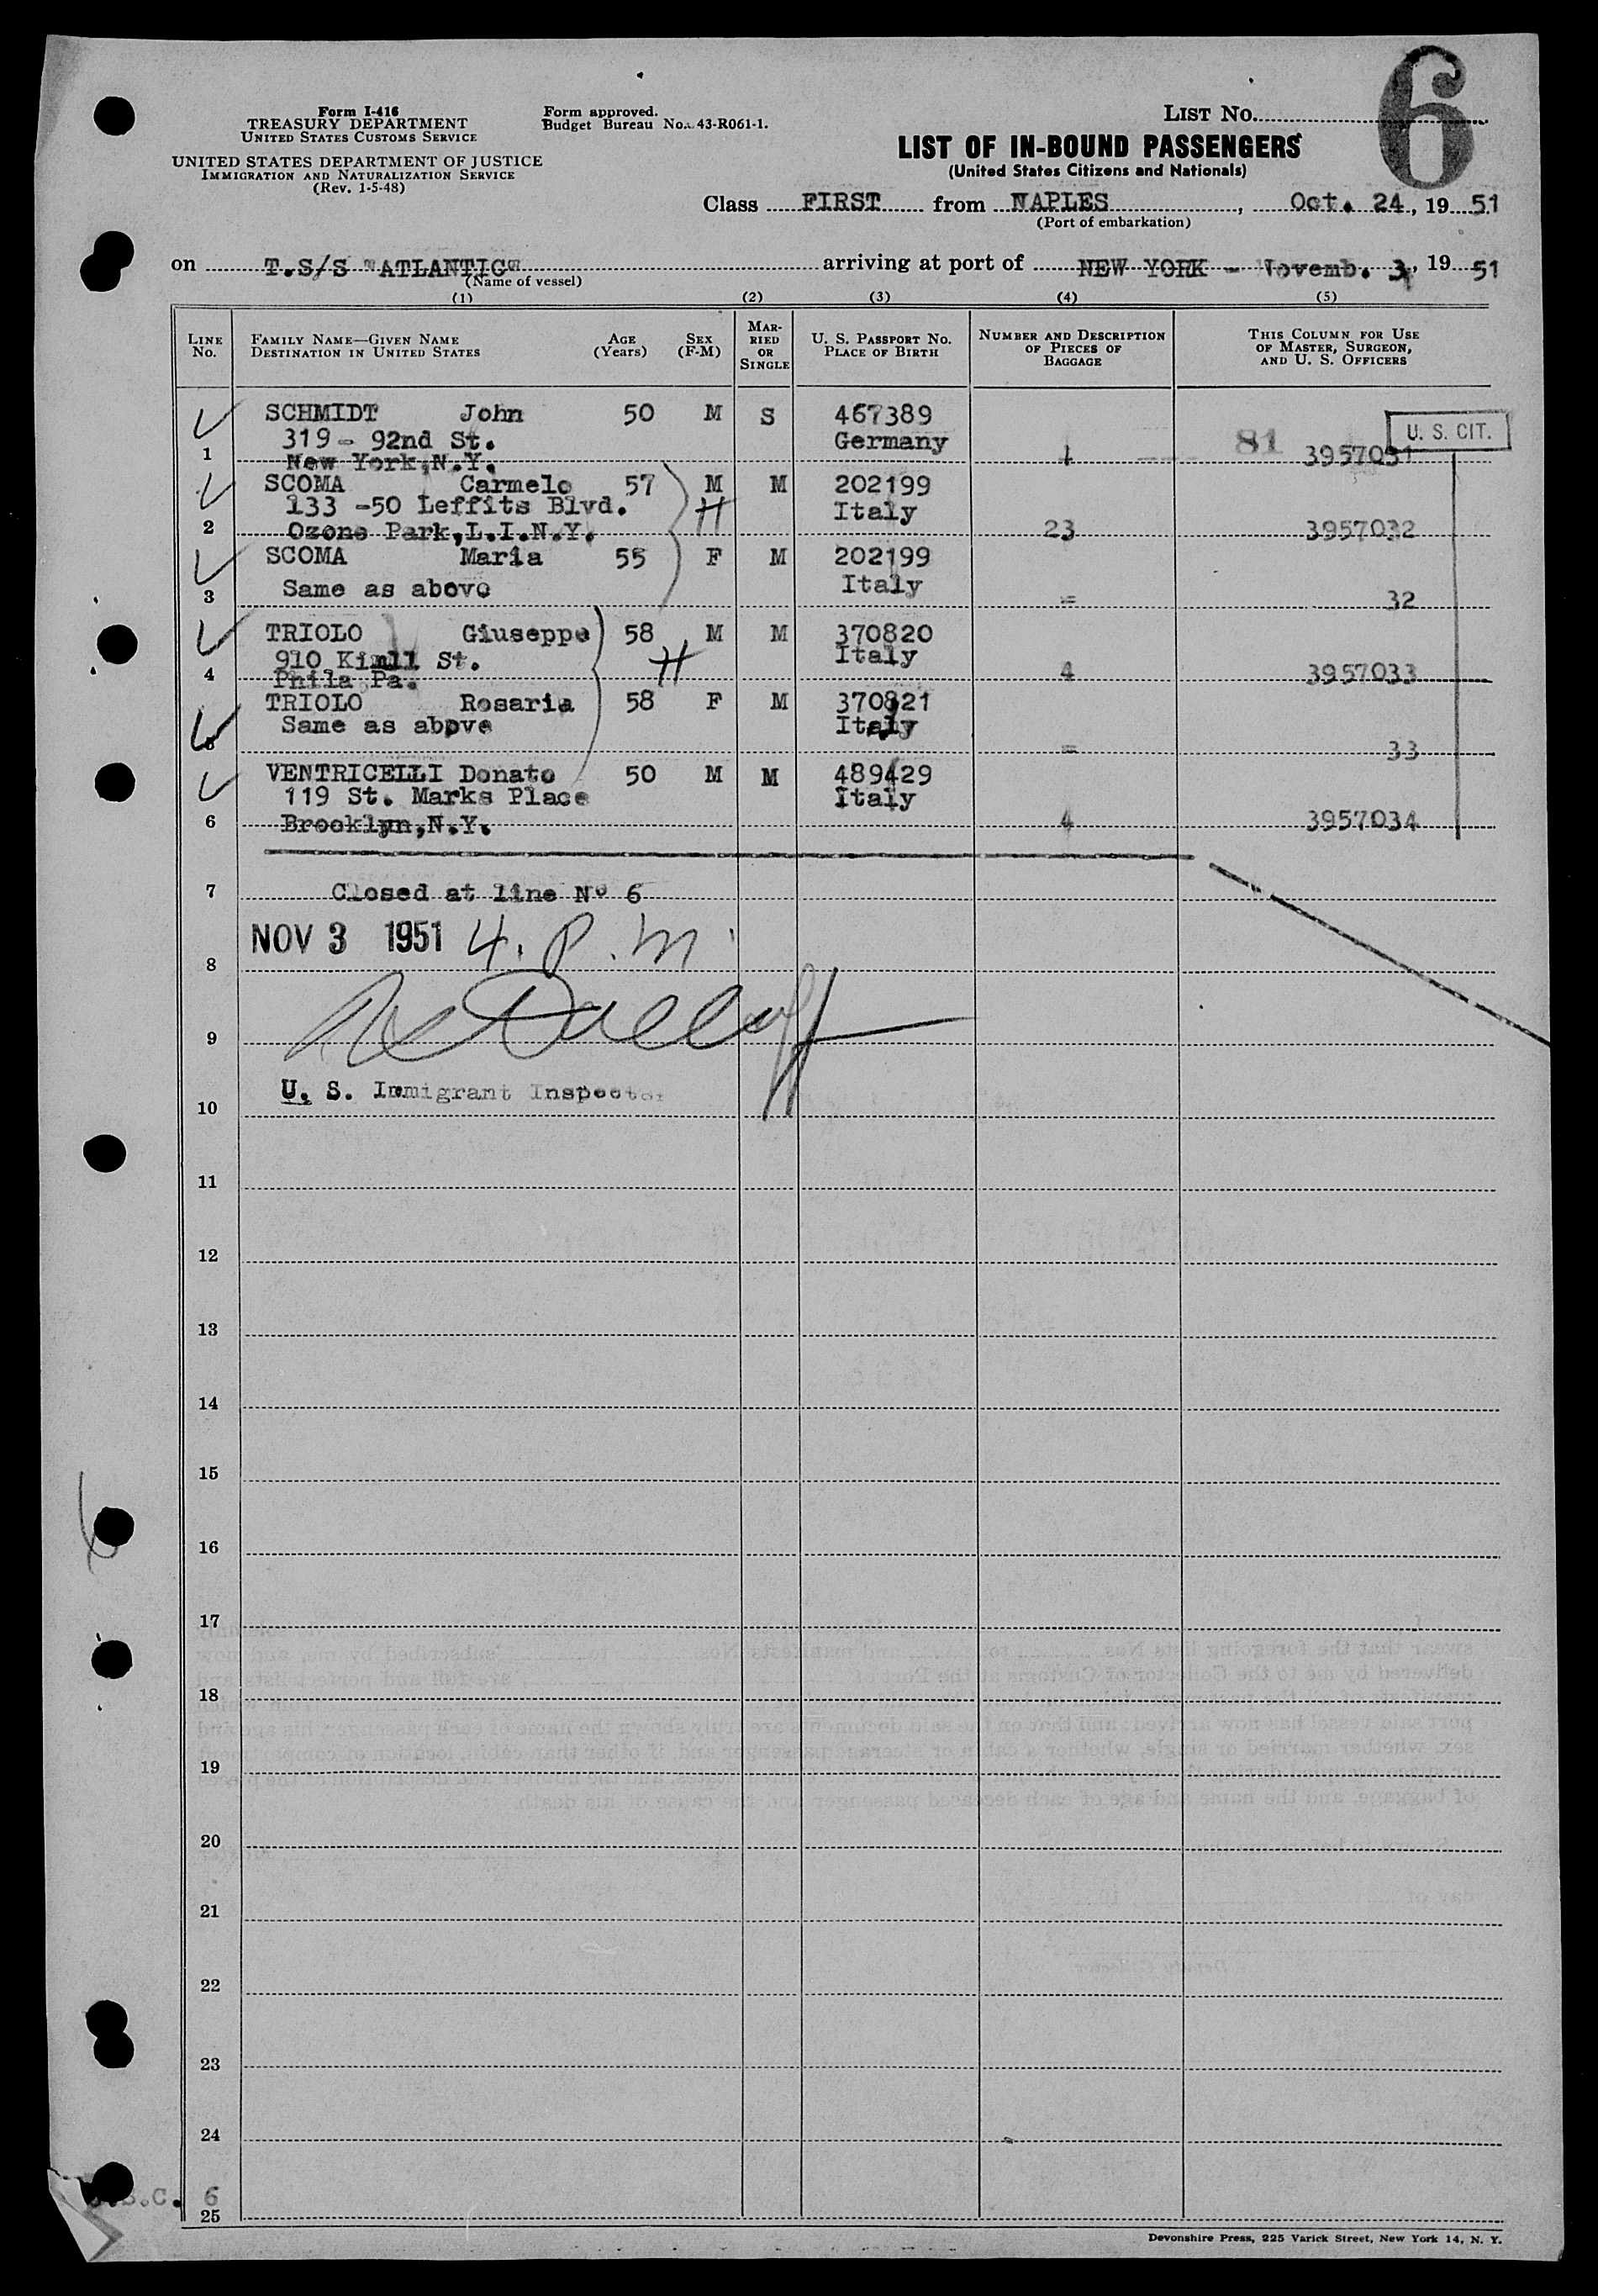 Form I-416
TREASURY DEPARTMENT
UNITED STATES CUSTOMS SERVICE
UNITED STATES DEPARTMENT OF JUSTICE
IMMIGRATION AND NATURALIZATION SERVICE
(Rev. 1-5-48)
Form approved.
Budget Bureau No. 43-R061-1.
LIST No. 6
LIST OF IN-BOUND PASSENGERS
(United States Citizens and Nationals)
Class FIRST from NAPLES, Oct. 24, 1951
(Port of embarkation)
on T.S/S "ATLANTIC" arriving at port of NEW YORK - Novemb. 3, 1951
(Name of vessel)
(1) (2) (3) (4) (5)
LINE No. FAMILY NAME—GIVEN NAME DESTINATION IN UNITED STATES AGE (Years) SEX (F-M) MARRIED OR SINGLE U. S. PASSPORT No. PLACE OF BIRTH NUMBER AND DESCRIPTION OF PIECES OF BAGGAGE THIS COLUMN FOR USE OF MASTER, SURGEON, AND U. S. OFFICERS
SCHMIDT John 50 M S 467389
319 - 92nd St. Germany U. S. CIT.
1 New York, N.Y. 1 81 3957031
SCOMA Carmelo 57 M M 202199
133 -50 Leffits Blvd. H Italy
2 Ozone Park, L.I.N.Y. 23 3957032
SCOMA Maria 55 F M 202199
3 Same as above Italy = 32
TRIOLO Giuseppe 58 M M 370820
910 St. H Italy
4 Phila Pa. 4 3957033
TRIOLO Rosaria 58 F M 370821
Same as above Italy
5 = 33
VENTRICELLI Donato 50 M M 489429
119 St. Marks Place Italy
6 Brooklyn, N.Y. 4 3957034
7 Closed at line Nº 6
NOV 3 1951 4. P.M.
8
9
U. S. Immigrant Inspector
10
11
12
13
14
15
16
17
18
19
20
21
22
23
24
.S.C. 6
25
Devonshire Press, 225 Varick Street, New York 14, N. Y.